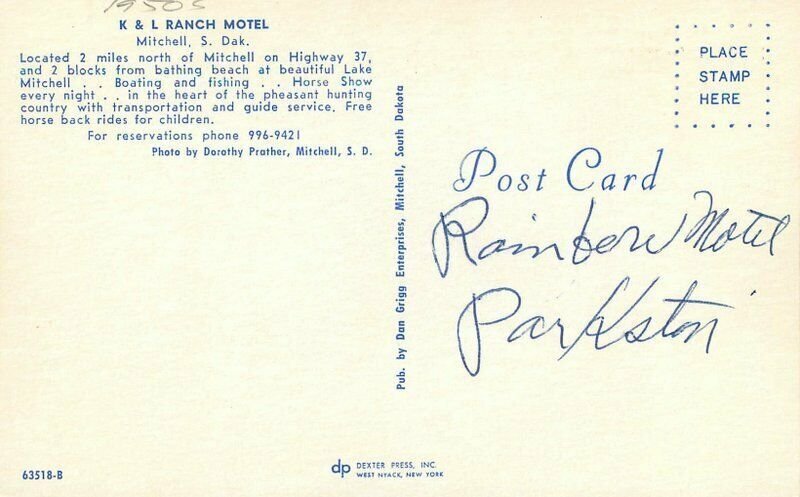 1950s
K & L RANCH MOTEL
Mitchell, S. Dak.
Located 2 miles north of Mitchell on Highway 37,
and 2 blocks from bathing beach at beautiful Lake
Mitchell . . Boating and fishing . . Horse Show
every night . . in the heart of the pheasant hunting
country with transportation and guide service. Free
horse back rides for children.
For reservations phone 996-9421
Photo by Dorothy Prather, Mitchell, S. D.
Pub. by Dan Grigg Enterprises, Mitchell, South Dakota
PLACE
STAMP
HERE
Post Card
Rainbow Motel
Parkston
63518-B
dp DEXTER PRESS, INC.
WEST NYACK, NEW YORK